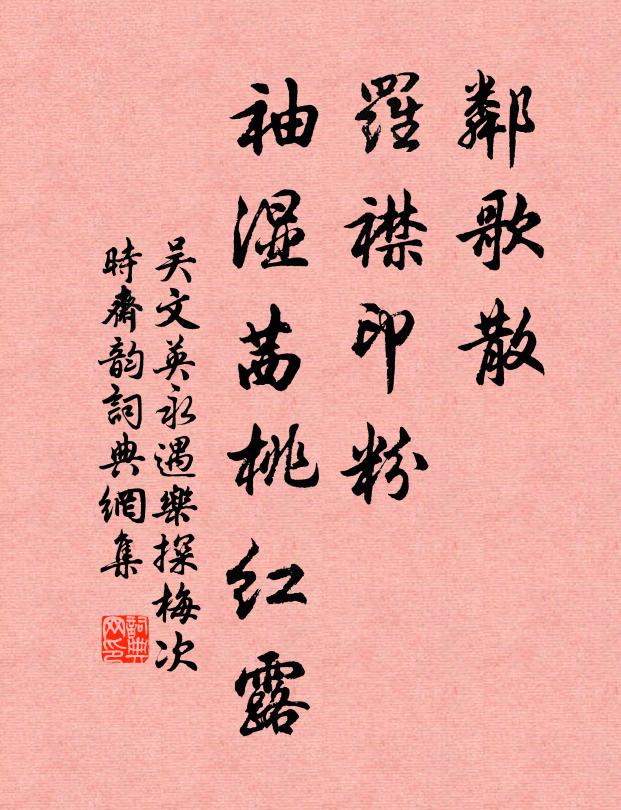 鄰歌散
羅襟印粉
袖濕茜桃紅露
吴文英永遇樂探梅次
時齋韵詞典網集
詞典网印